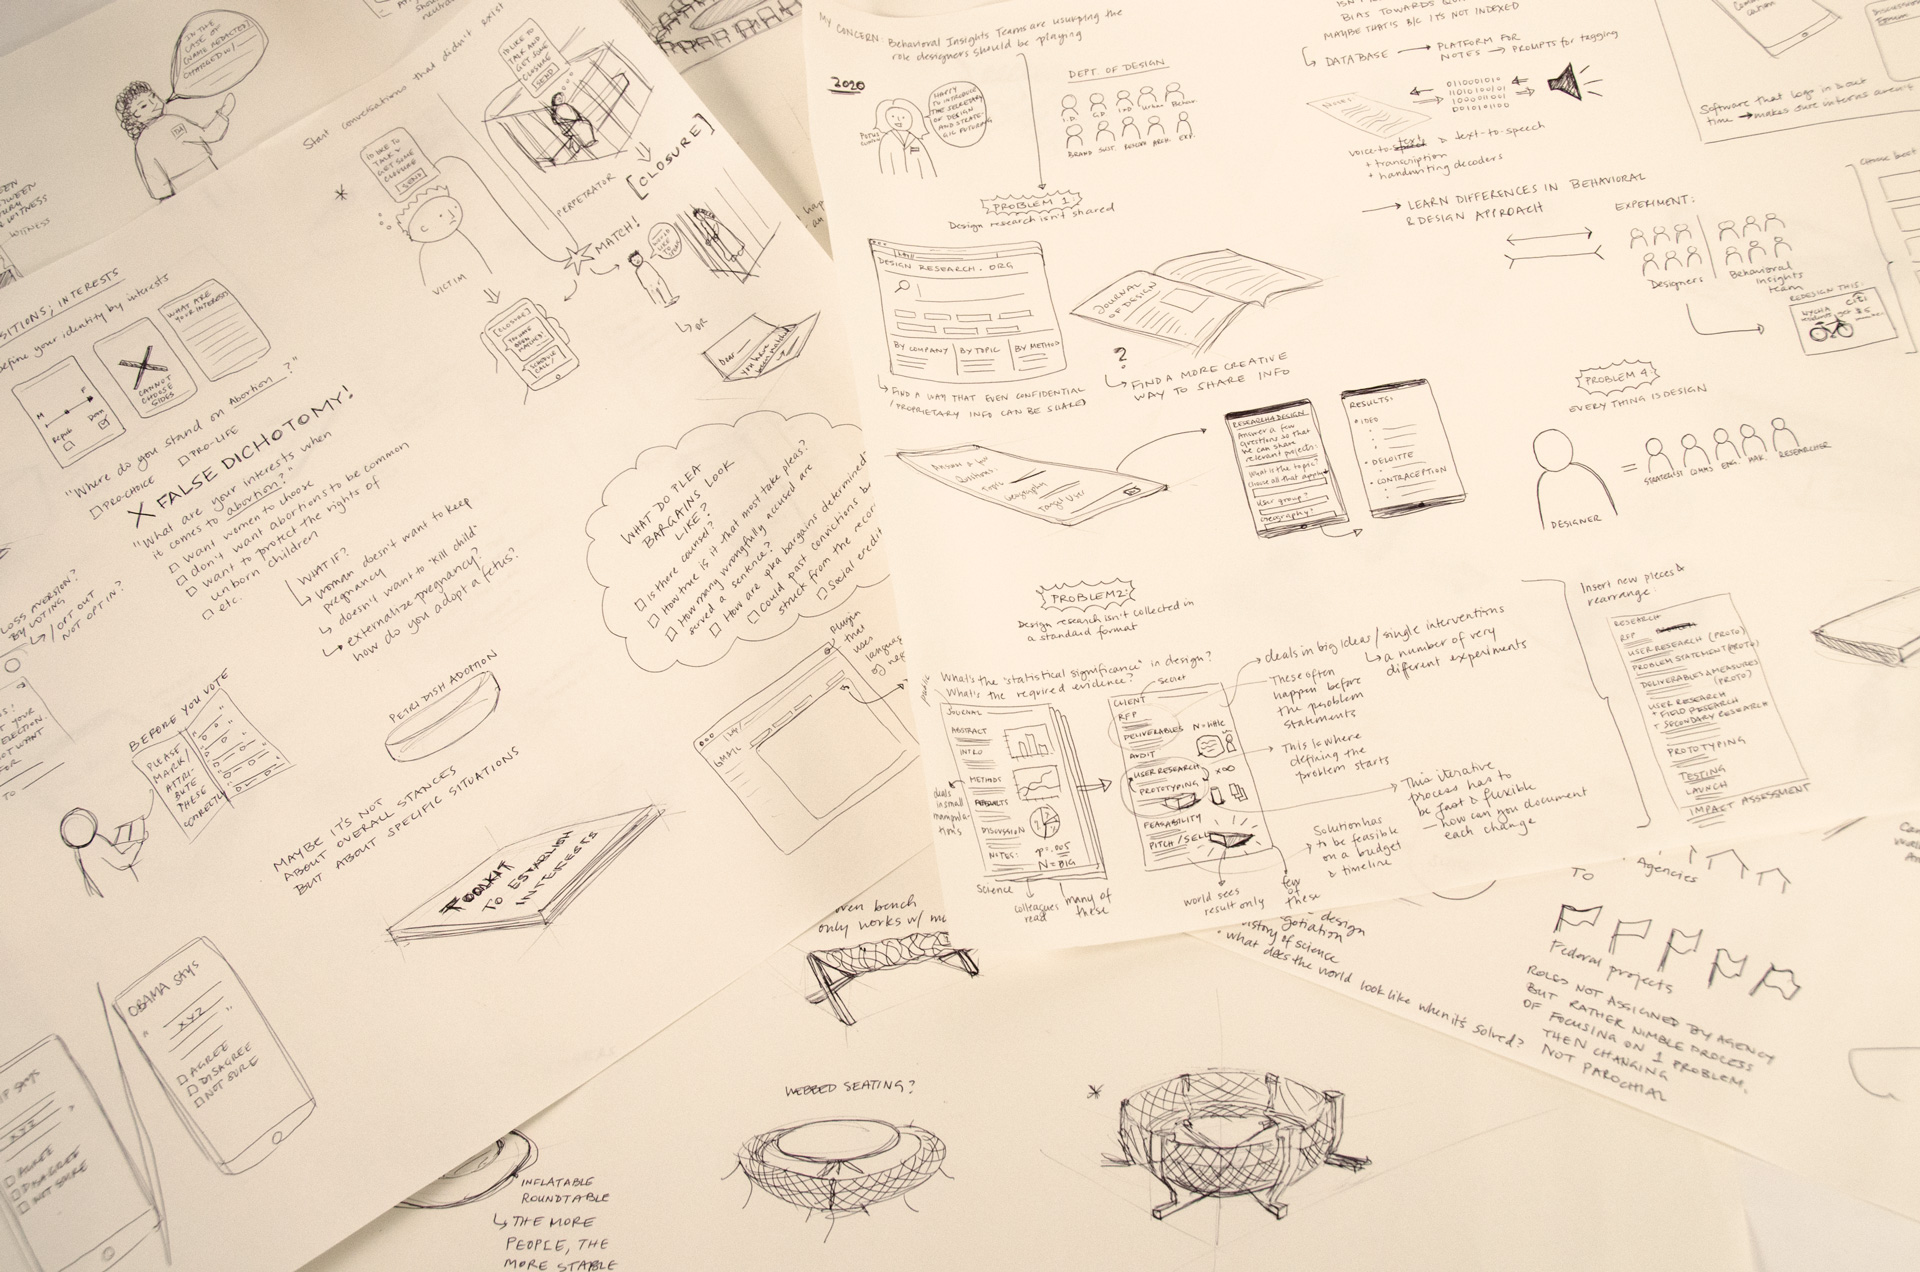 IN THE
CASE OF
[NAME REDACTED]
CHARGED W/
Start conversations that didn't exist
I'D LIKE TO
TALK AND
GET SOME
CLOSURE
SEND
I'D LIKE TO
TALK &
GET SOME
CLOSURE
SEND
VICTIM
PERPETRATOR
[CLOSURE]
MATCH!
[CLOSURE]
YOU HAVE
BEEN
MATCHED!
SCHEDULE
CALL!
↳ OR
Dear
you have
been matched
WITNESS
SITIONS; INTEREST
efine your identity by interests
WHAT ARE
YOUR INTERESTS
CANNOT
CHOOSE
SIDES
Repub
Dem
"Where do you stand on Abortion?"
□ PRO-CHOICE □ PRO-LIFE
X FALSE DICHOTOMY!
"What are your interests when
it comes to abortion?"
□ want women to choose
□ don't want abortions to be common
□ want to protect the rights of
unborn children
□ etc.
↳ WHAT IF?
woman doesn't want to keep
pregnancy
↳ doesn't want to "kill child"
↳ externalize pregnancy?
how do you adopt a fetus?
LOSS AVERSION?
BY VOTING
↳ / OPT OUT
NOT OPT IN?
BEFORE YOU VOTE
PLEASE
MARK/
ATTRI-
BUTE
THESE
CORRECTLY
PETRI DISH ADOPTION
MAYBE IT'S NOT
ABOUT OVERALL STANCES
BUT ABOUT SPECIFIC SITUATIONS
TOOLKIT
TO ESTABLISH
INTERESTS
OBAMA SAYS
" XYZ "
□ AGREE
□ DISAGREE
□ NOT SURE
P SAYS
XYZ
□ AGREE
□ DISAGREE
□ NOT SURE
WHAT DO PLEA
BARGAINS LOOK
LIKE?
□ Is there
counsel?
□ How true is it that most take pleas?
□ How many wrongfully accused are
served a sentence?
□ How are plea bargains determined
□ Could past convictions be
struck from the recor
□ Social credit
plugin
that
uses
language
of neg
GMAIL
oven bench
only works w/ m
WEBBED SEATING?
INFLATABLE
ROUNDTABLE
↳ THE MORE
PEOPLE, THE
MORE STABLE
MY CONCERN: Behavioral Insights Teams are usurping the
role designers should be playing
2020
POTUS
HAPPY
TO INTRODUCE
THE SECRETARY
OF DESIGN
AND STRATE-
GIC FUTURING
DEPT. OF DESIGN
I.D. G.D. IxD Urban Behav.
BRAND SUST. RESEARCH ARCH. EXP.
PROBLEM 1:
Design research isn't shared
DESIGN RESEARCH.ORG
BY COMPANY | BY TOPIC | BY METHOD
↳ FIND A WAY THAT EVEN CONFIDENTIAL
/PROPRIETARY INFO CAN BE SHARED
JOURNAL
OF DESIGN
?
↳ FIND A MORE CREATIVE
WAY TO SHARE INFO
Topic
Geography
Target User
RESEARCH & DESIGN
Answer a few
questions so that
we can share
relevant projects:
What is the topic?
Choose all that apply
User group?
Geography?
RESULTS:
• IDEO
• DELOITTE
• CONTRACEPTION
BIAS TOWARDS
MAYBE THAT'S B/C IT'S NOT INDEXED
↳ DATABASE → PLATFORM FOR
NOTES → PROMPTS for tagging
NOTES
voice-to-text & text-to-speech
+ transcription
+ handwriting decoders
→ LEARN DIFFERENCES IN BEHAVIORAL
& DESIGN APPROACH
EXPERIMENT:
Designers
Behavioral
Insights
team
REDESIGN THIS:
citi
NYCHA
residents get $5
Software that logs in & out
time → makes sure interns aren't
PROBLEM 4:
EVERYTHING IS DESIGN
DESIGNER
=
STRATEGIST COMMS ENG. MAR. RESEARCHER
PROBLEM 2:
Design research isn't collected in
a standard format
What's the "statistical significance" in design?
What's the required evidence?
public
secret
JOURNAL
ABSTRACT
INTRO
METHODS
RESULTS
DISCUSSION
NOTES:
p=.005
N=BIG
deals
in small
manipula-
tions
Science
colleagues
read
many of
these
CLIENT
RFP
DELIVERABLES
AUDIT
USER RESEARCH
PROTOTYPING
FEASABILITY
PITCH/SELL
world sees
result only
few
of
these
→ deals in big ideas/single interventions
↳ a number of very
different experiments
These often
happen before
the problem
statements
This is where
defining the
problem starts
This iterative
process has to
be fast & flexible
— how can you document
each change
Solution has
to be feasible
on a budget
& timeline
Insert new pieces &
rearrange
RESEARCH
RFP
USER RESEARCH (PROTO)
PROBLEM STATEMENT (PROTO)
DELIVERABLES & MEASURES
(PROTO)
USER RESEARCH
• FIELD RESEARCH
+ SECONDARY RESEARCH
PROTOTYPING
TESTING
LAUNCH
IMPACT ASSESSMENT
Agencies
TO
Federal projects
ROLES NOT ASSIGNED BY AGENCY
BUT RATHER NIMBLE PROCESS
OF FOCUSING ON 1 PROBLEM.
THEN CHANGING
NOT PAROCHIAL
design
gotiation
istory of science
• what does the world look like when it's solved?